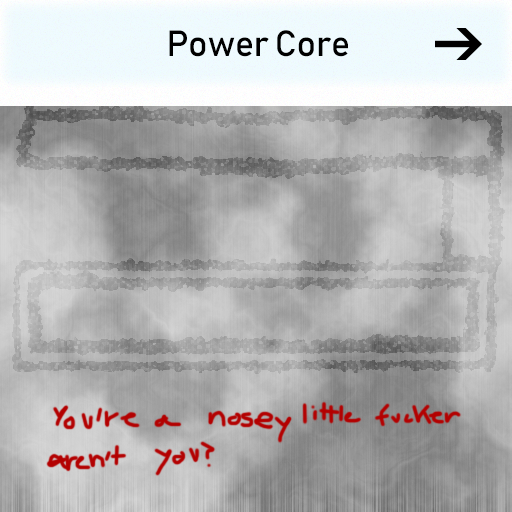 Power Core →
You're a nosey little fucker
aren't you?